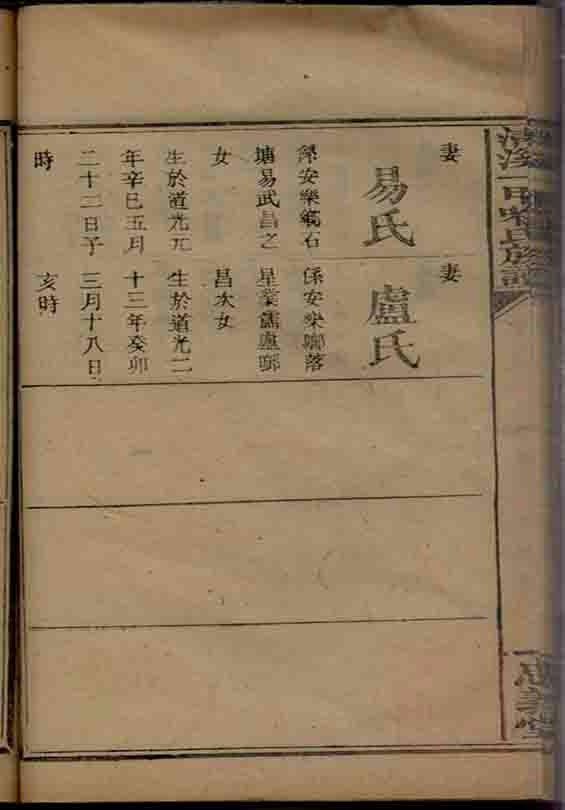 妻
易氏
係安樂鵝石
塘易武昌之
女
生於道光元
年辛巳五月
二十二日子
時
妻
盧氏
係安樂鄉落
星業儒盧鄉
昌次女
生於道光二
十三年癸卯
三月十八日
亥時
氏族譜
忠義堂